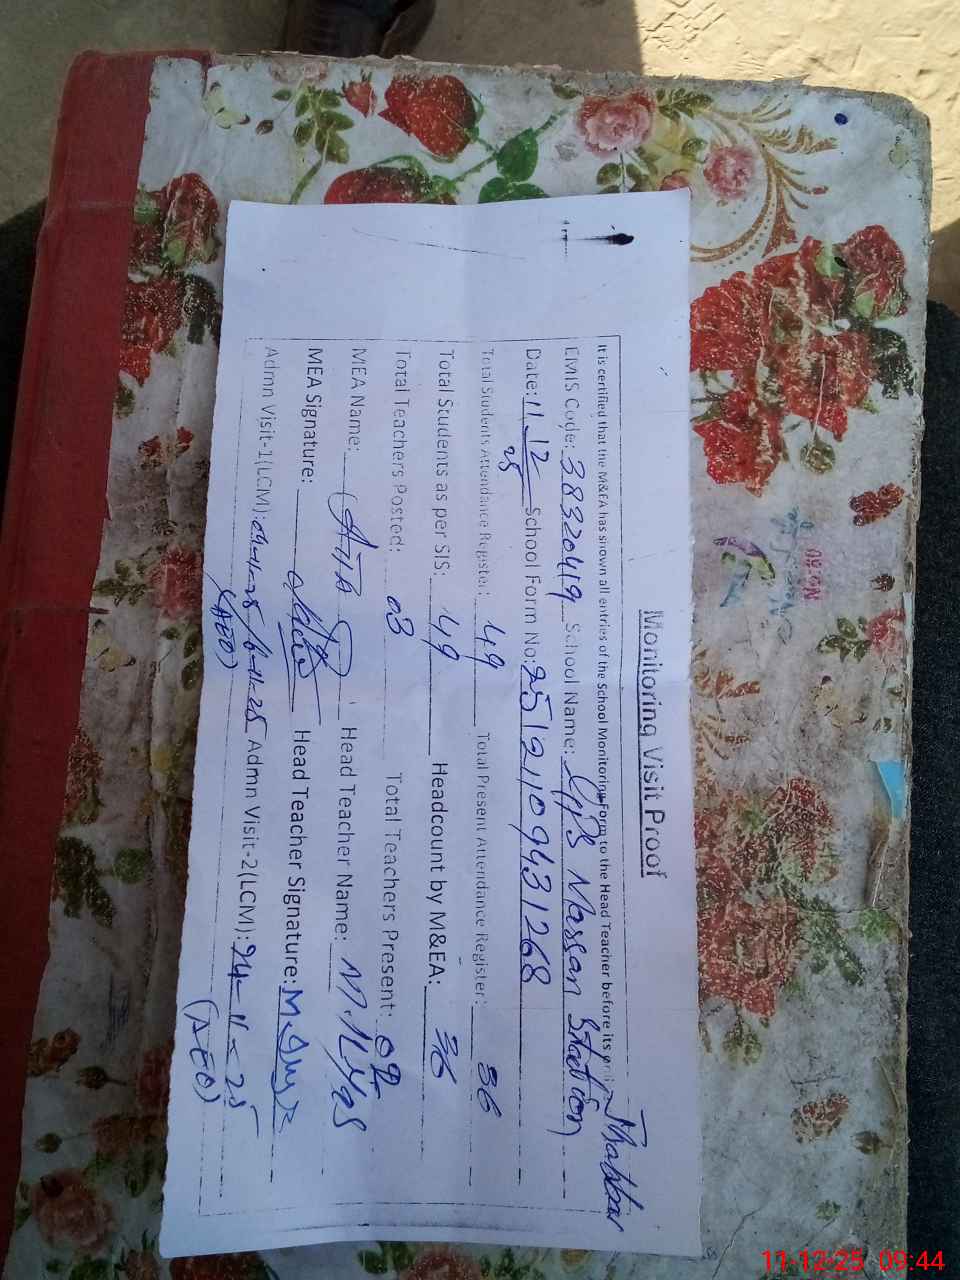 Monitoring Visit Proof
It is certified that the M&EA has shown all entries of the School Monitoring Form to the Head Teacher before its
EMIS Code: 38320419 School Name: GPS Massan Station
Date: 11.12 25 School Form No: 25121109431268
Total Students Attendance Register: 49 Total Present Attendance Register: 36
Total Students as per SIS: 49 Headcount by M&EA: 36
Total Teachers Posted: 03 Total Teachers Present: 02
MEA Name: Head Teacher Name: M. Ilyas
MEA Signature: Head Teacher Signature:
Admn Visit-1(LCM): 04-11-25/6-11-25 Admn Visit-2(LCM): 24-11-25
(AEO) (AEO)
11-12-25 09:44